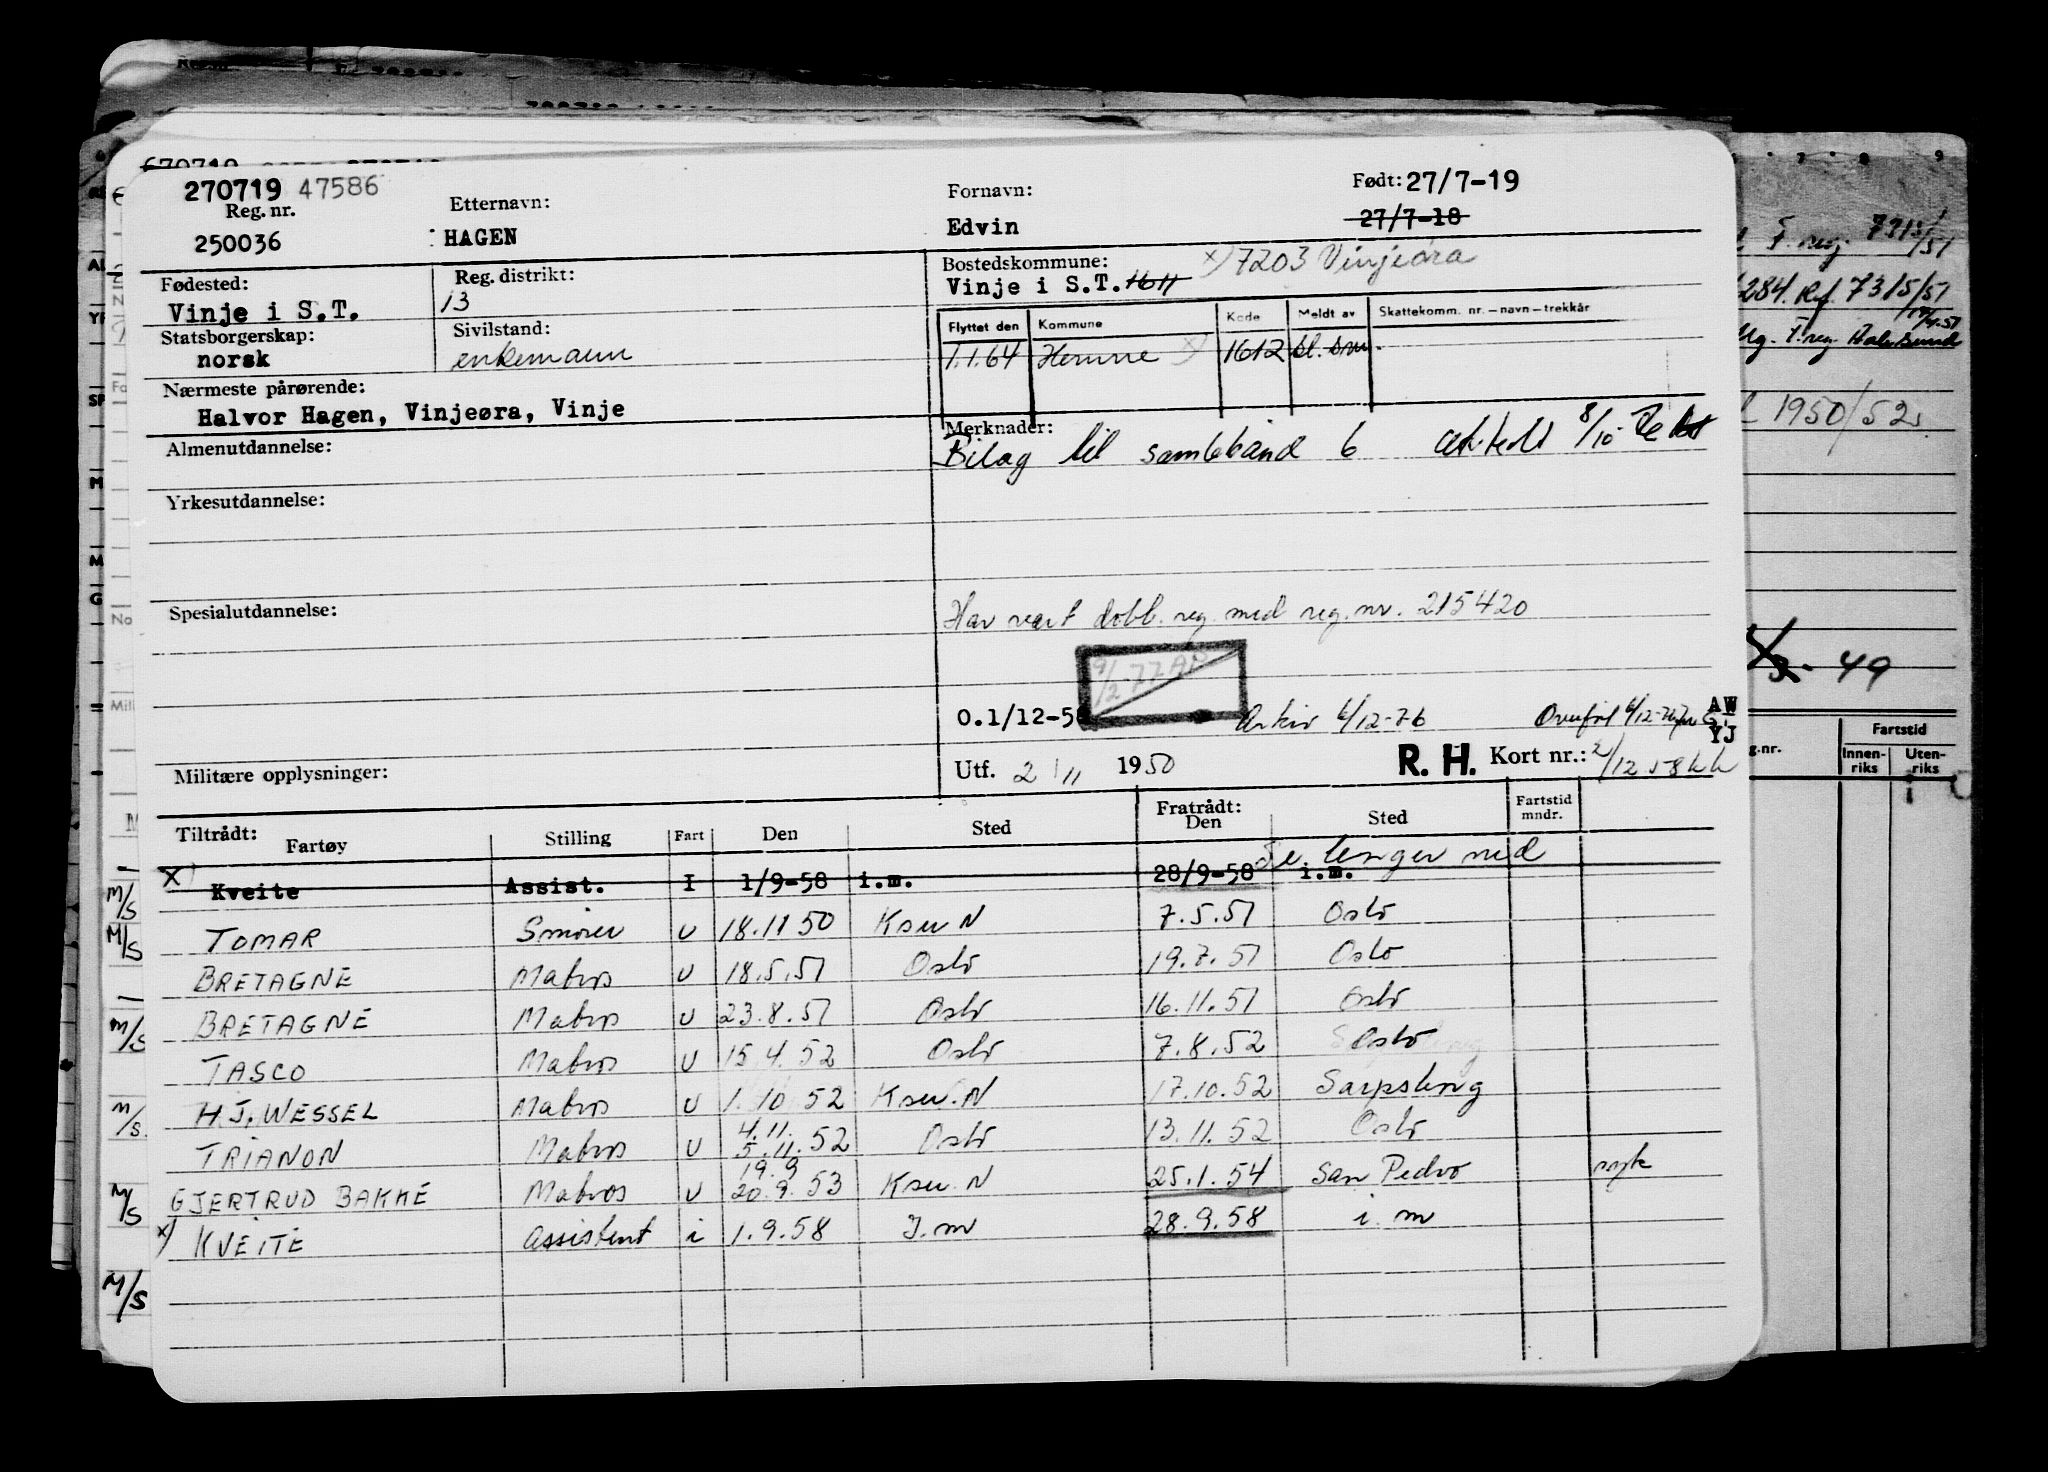 270719 47586
Reg. nr.
250036
Etternavn:
HAGEN
Fornavn:
Edvin
Født: 27/7-19
27/7-18
Fødested:
Vinje i S.T.
Reg. distrikt:
13
Bostedskommune: x) 7203 Vinjeøra
Vinje i S.T. 1611
Statsborgerskap:
norsk
Sivilstand:
enkemann
Flyttet den Kommune Kode Meldt av Skattekomm. nr. – navn – trekkår
1.1.64 Hemne x) 1612
Nærmeste pårørende:
Halvor Hagen, Vinjeøra, Vinje
Almenutdannelse:
Merknader:
Bilag til samleband 6 8/10
Yrkesutdannelse:
Spesialutdannelse:
Har vært dobb. reg. med reg. nr. 215420
9/2-77 AP
O.1/12-5
Arkiv 6/12-76
Overført 6/12-76
AW
YJ
Militære opplysninger:
Utf. 2/11 1950
R. H. Kort nr.: 2/12 58 kk
Tiltrådt:
Fartøy Stilling Fart Den Sted
Fratrådt:
Den Sted
Fartstid
mndr.
Se lenger ned
x) Kveite Assist. I 1/9-58 i.m. 28/9-58 i.m.
TOMAR Smører U 18.11 50 Ksu N 7.5.51 Oslo
BRETAGNE Matros U 18.5.51 Oslo 19.7.51 Oslo
BRETAGNE Matros U 23.8.51 Oslo 16.11.51 Oslo
TASCO Matros U 15.4.52 Oslo 7.8.52 Oslo
H.J. WESSEL Matros U 1.10 52 Ksu. N 17.10.52 Sarpsborg
4.11.
TRIANON Matros U 5.11.52 Oslo 13.11.52 Oslo
19.9
GJERTRUD BAKKE Matros U 20.9.53 Ksu. N 25.1.54 San Pedro syk
x) KVEITE Assistent i 1.9.58 I.m 28.9.58 i.m
M/S
M/S
M/S
M/S.
M/S
M/S
7315/51
284. Ref. 7315/51
1950/52
49
g.nr.
Fartstid
Innen-
riks
Uten-
riks